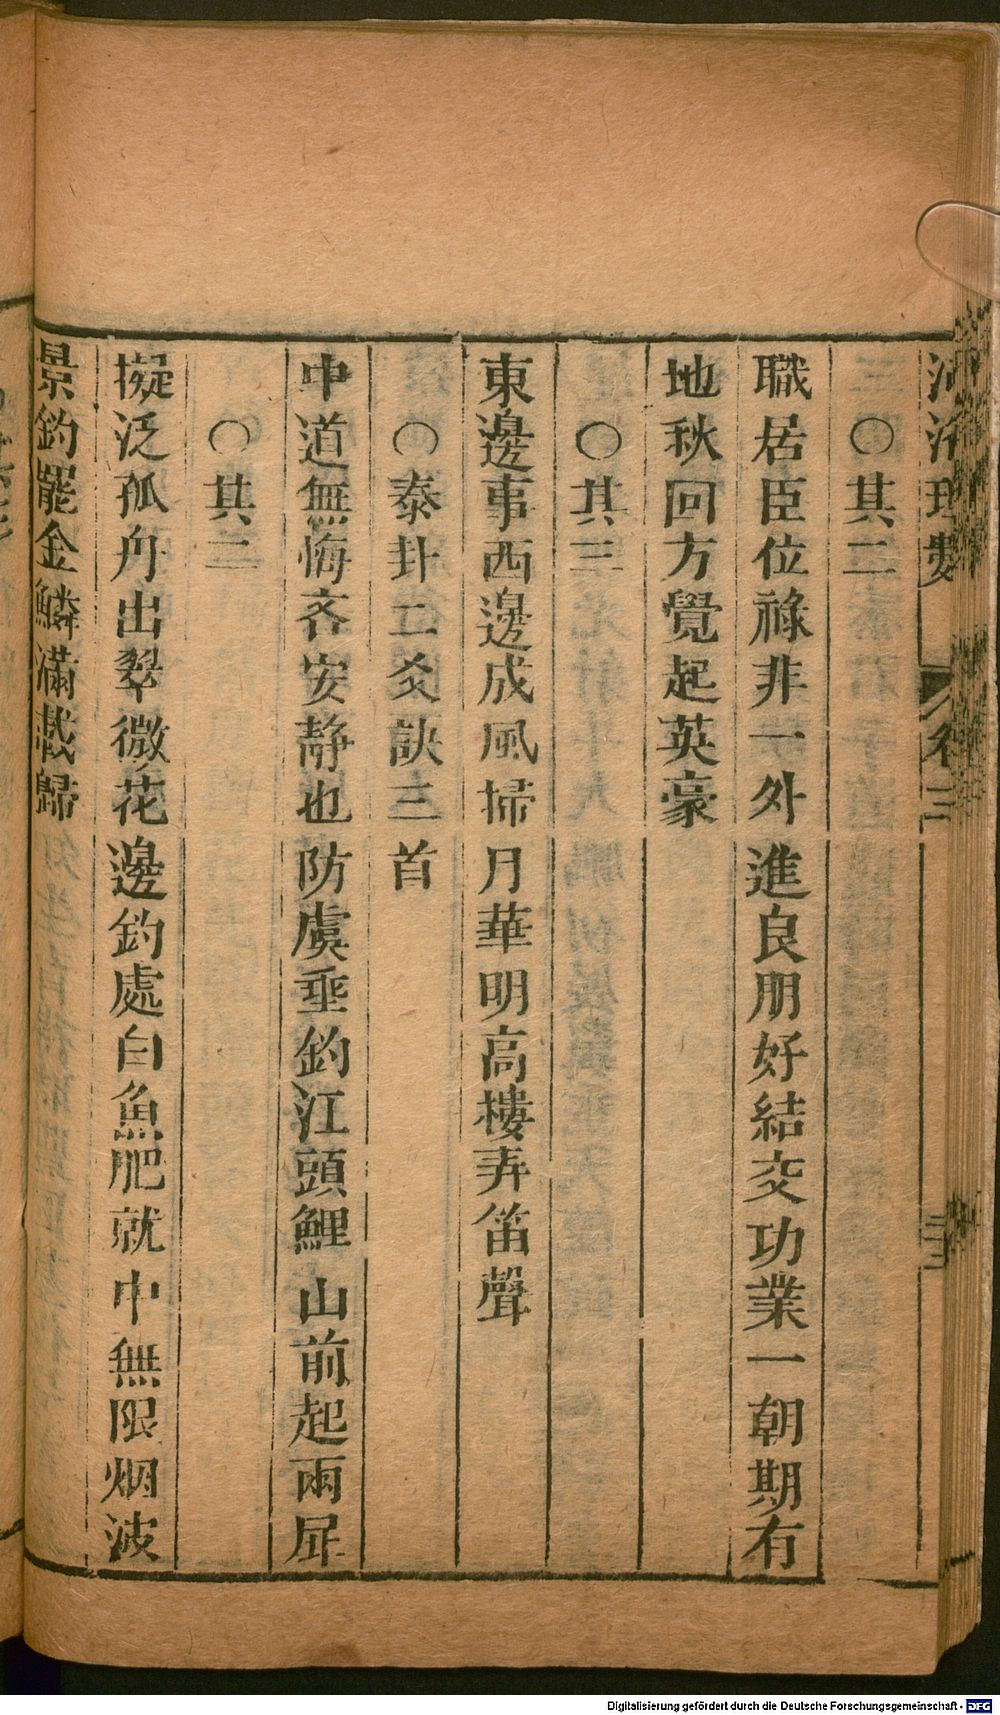 河洛理數 卷三 三三
○其二
職居臣位祿非一外進良朋好結交功業一朝期有
地秋回方覺起英豪
○其三
東邊事西邊成風掃月華明高樓弄笛聲
○泰卦二爻訣三首
中道無悔吝安靜也防虞垂釣江頭鯉山前起雨
○其二
擬泛孤舟出翠微花邊釣處白魚肥就中無限烟波
景釣罷金鱗滿載歸
Digitalisierung gefördert durch die Deutsche Forschungsgemeinschaft - DFG